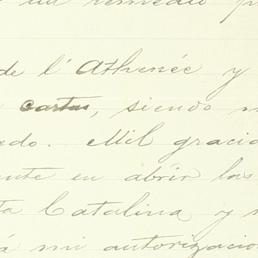 un remedio p
de l'Athenée y
cartas, siendo m
edo. Mil gracia
nte en abrir las
ta Catalina y
á mi autorizacio